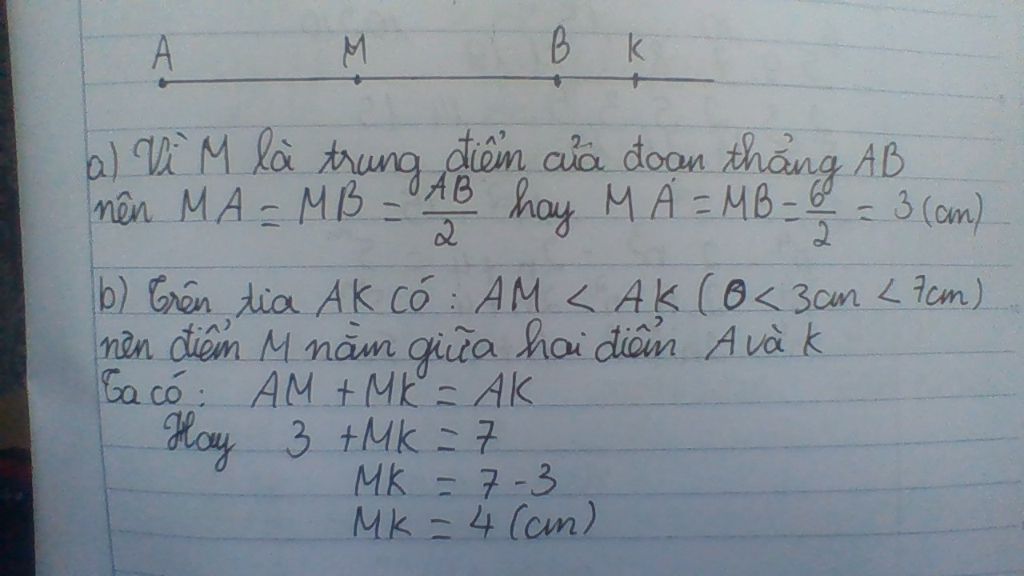 A M B K
a) Vì M là trung điểm của đoan thẳng AB
nên MA = MB = AB/2 hay MA = MB = 6/2 = 3 (cm)
b) Trên tia AK có : AM < AK ( 0 < 3cm < 7cm )
nên điểm M nằm giữa hai điểm A và K
Ta có : AM + MK = AK
Hay 3 + MK = 7
MK = 7 - 3
MK = 4 (cm)